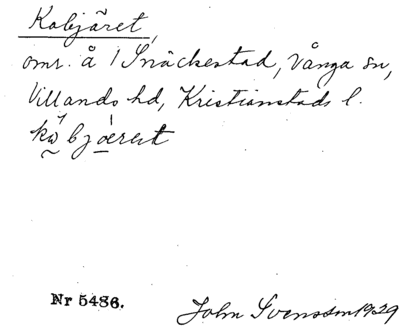 Kobjäret,
omr. å 1 Snäckestad, Vånga sn,
Villands hd, Kristianstads l.
Nr 5486.
John Svensson 1929